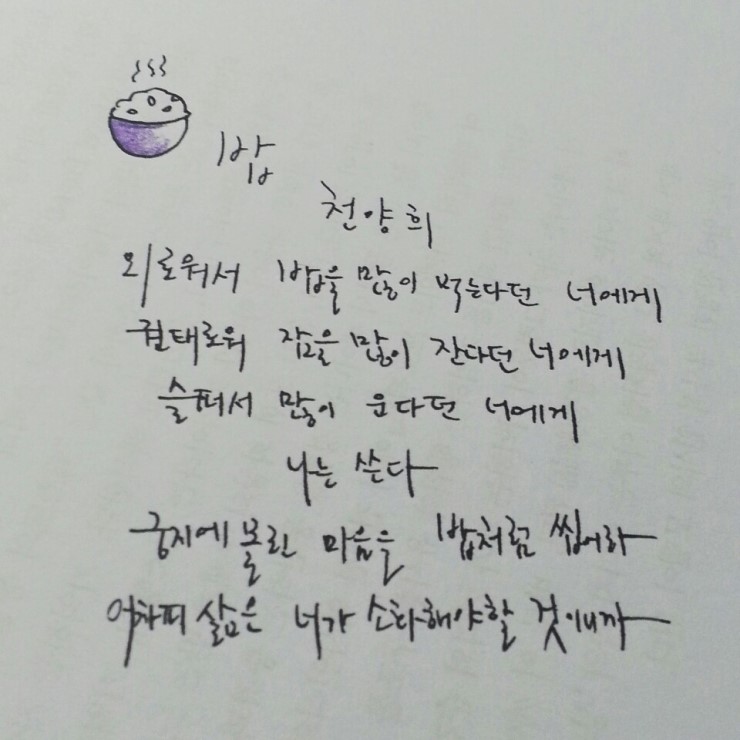 밥
천양희
외로워서 밥을 많이 먹는다던 너에게
권태로워 잠을 많이 잔다던 너에게
슬퍼서 많이 운다던 너에게
나는 쓴다
궁지에 몰린 마음을 밥처럼 씹어라
어차피 삶은 너가 소화해야할 것이니까